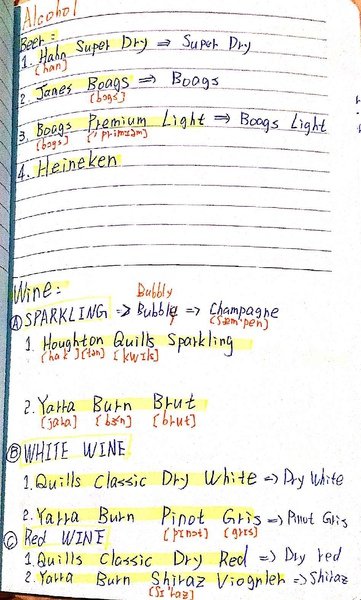 Alcohol
Beer:
1. Hahn Super Dry ⇒ Super Dry
[han]
2. Janes Boags ⇒ Boags
[bogs]
3. Boags Premium Light ⇒ Boogs Light
[bogs] ['primiəm]
4. Heineken
Wine:
Bubbly
Ⓐ SPARKLING ⇒ Bubbly ⇒ Champagne
[ʃæm'pen]
1. Houghton Quills Sparkling
[kwils]
2. Yarra Burn Brut
[jara] [bɜn] [brut]
Ⓑ WHITE WINE
1. Quills Classic Dry White ⇒ Dry White
2. Yarra Burn Pinot Gris ⇒ Pinot Gris
[pinot] [gris]
Ⓒ Red WINE
1. Quills Classic Dry Red ⇒ Dry red
2. Yarra Burn Shiraz Viognier ⇒ Shiraz
[ʃi'raz]